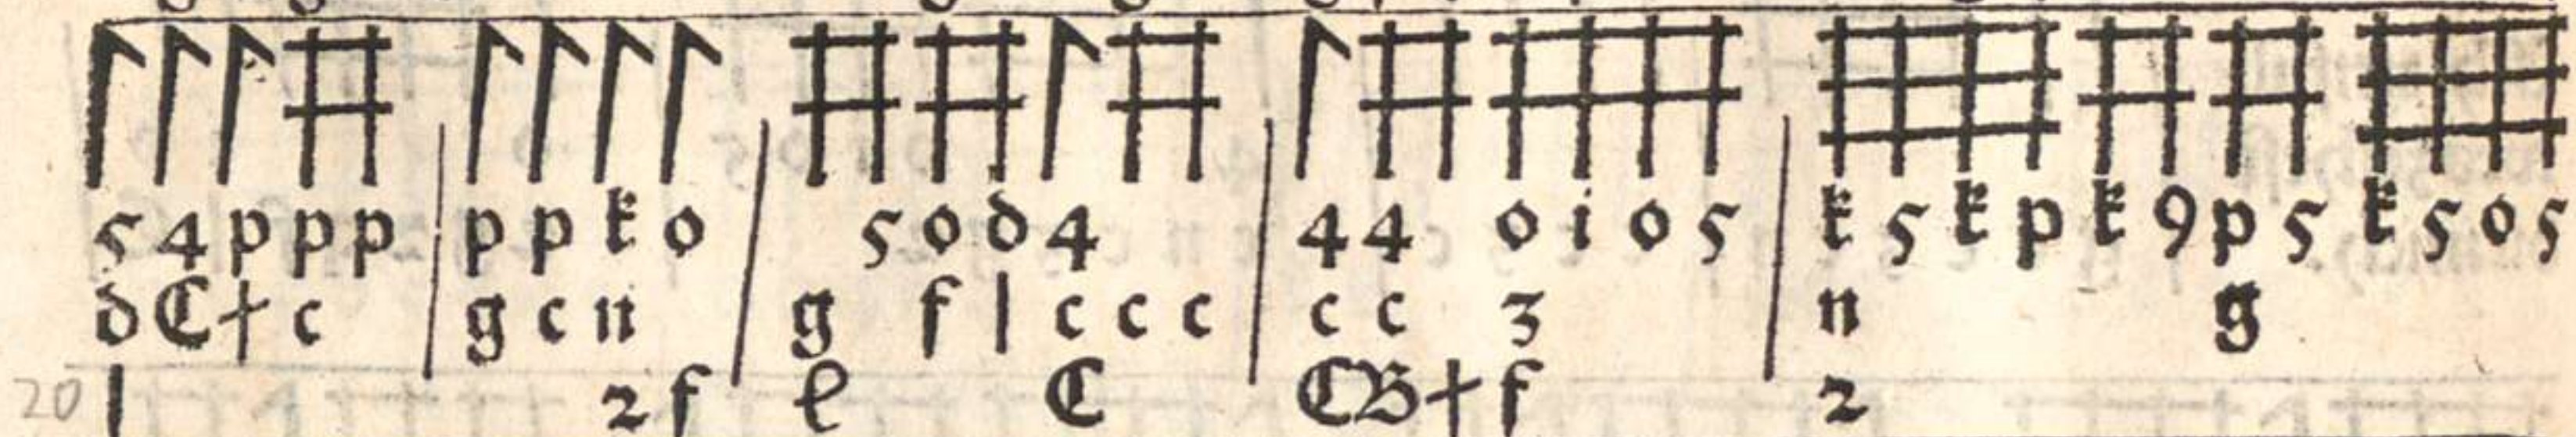 5 4 p p p | p p k o | 5 o d 4 | 4 4 o i o 5 | k 5 k p k 9 p 5 k 5 o 5
d C † c | g c n | g f l c c c | c c 3 | n g
20 l 2 f l C C B † f 2